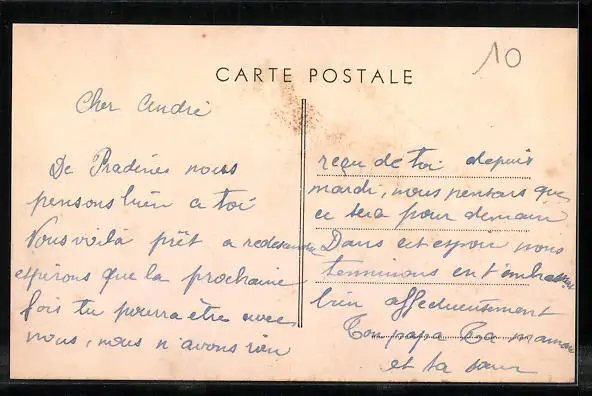 10
CARTE POSTALE
Cher André
De Pradines nous
pensons bien a toi
Nous voilà prêt a redescendre
espérons que la prochaine
fois tu pourra être avec
nous, nous n'avons rien
reçu de toi depuis
mardi, nous pensons que
ce sera pour demain
Dans cet espoir nous
terminons en t'embrassant
bien affectueusement
Ton papa Ta maman
et ta sœur